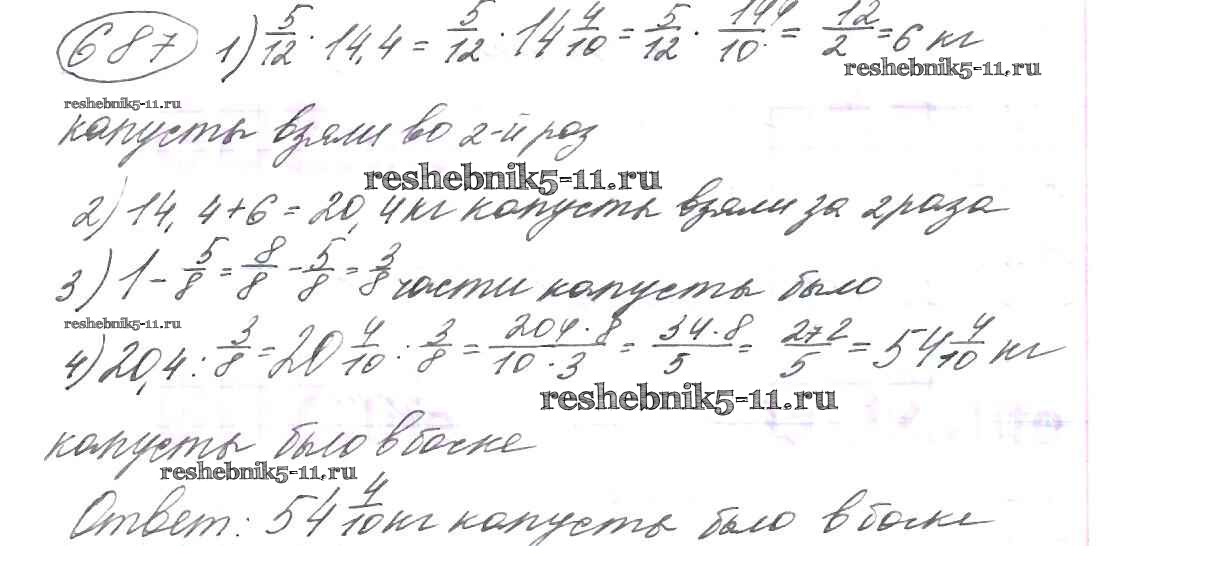 687 1) 5/12 · 14,4 = 5/12 · 14 4/10 = 5/12 · 144/10 = 12/2 = 6 кг
reshebnik5-11.ru
reshebnik5-11.ru
капусты взяли во 2-й раз
reshebnik5-11.ru
2) 14,4+6 = 20,4кг капусты взяли за 2 раза
3) 1 - 5/8 = 8/8 - 5/8 = 3/8 части капусты было
reshebnik5-11.ru
4) 20,4 : 3/8 = 20 4/10 : 3/8 = 204·8/10·3 = 34·8/5 = 272/5 = 54 4/10 кг
reshebnik5-11.ru
капусты было в бочке
reshebnik5-11.ru
Ответ: 54 4/10 кг капусты было в бочке